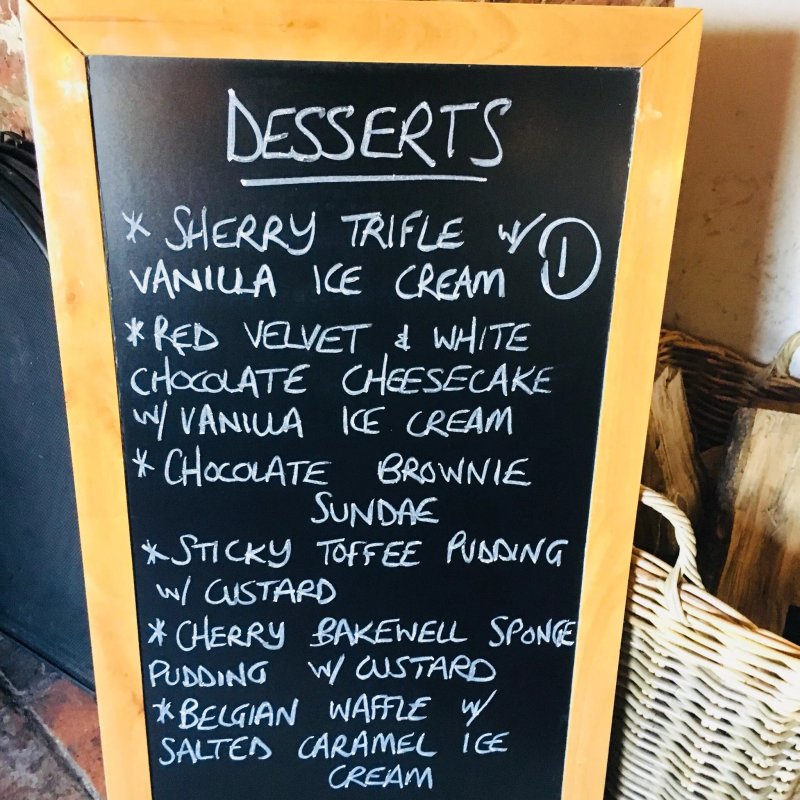 DESSERTS
* SHERRY TRIFLE w/ 1
VANILLA ICE CREAM
* RED VELVET & WHITE
CHOCOLATE CHEESECAKE
w/ VANILLA ICE CREAM
* CHOCOLATE BROWNIE
SUNDAE
* STICKY TOFFEE PUDDING
w/ CUSTARD
* CHERRY BAKEWELL SPONGE
PUDDING w/ CUSTARD
* BELGIAN WAFFLE w/
SALTED CARAMEL ICE
CREAM